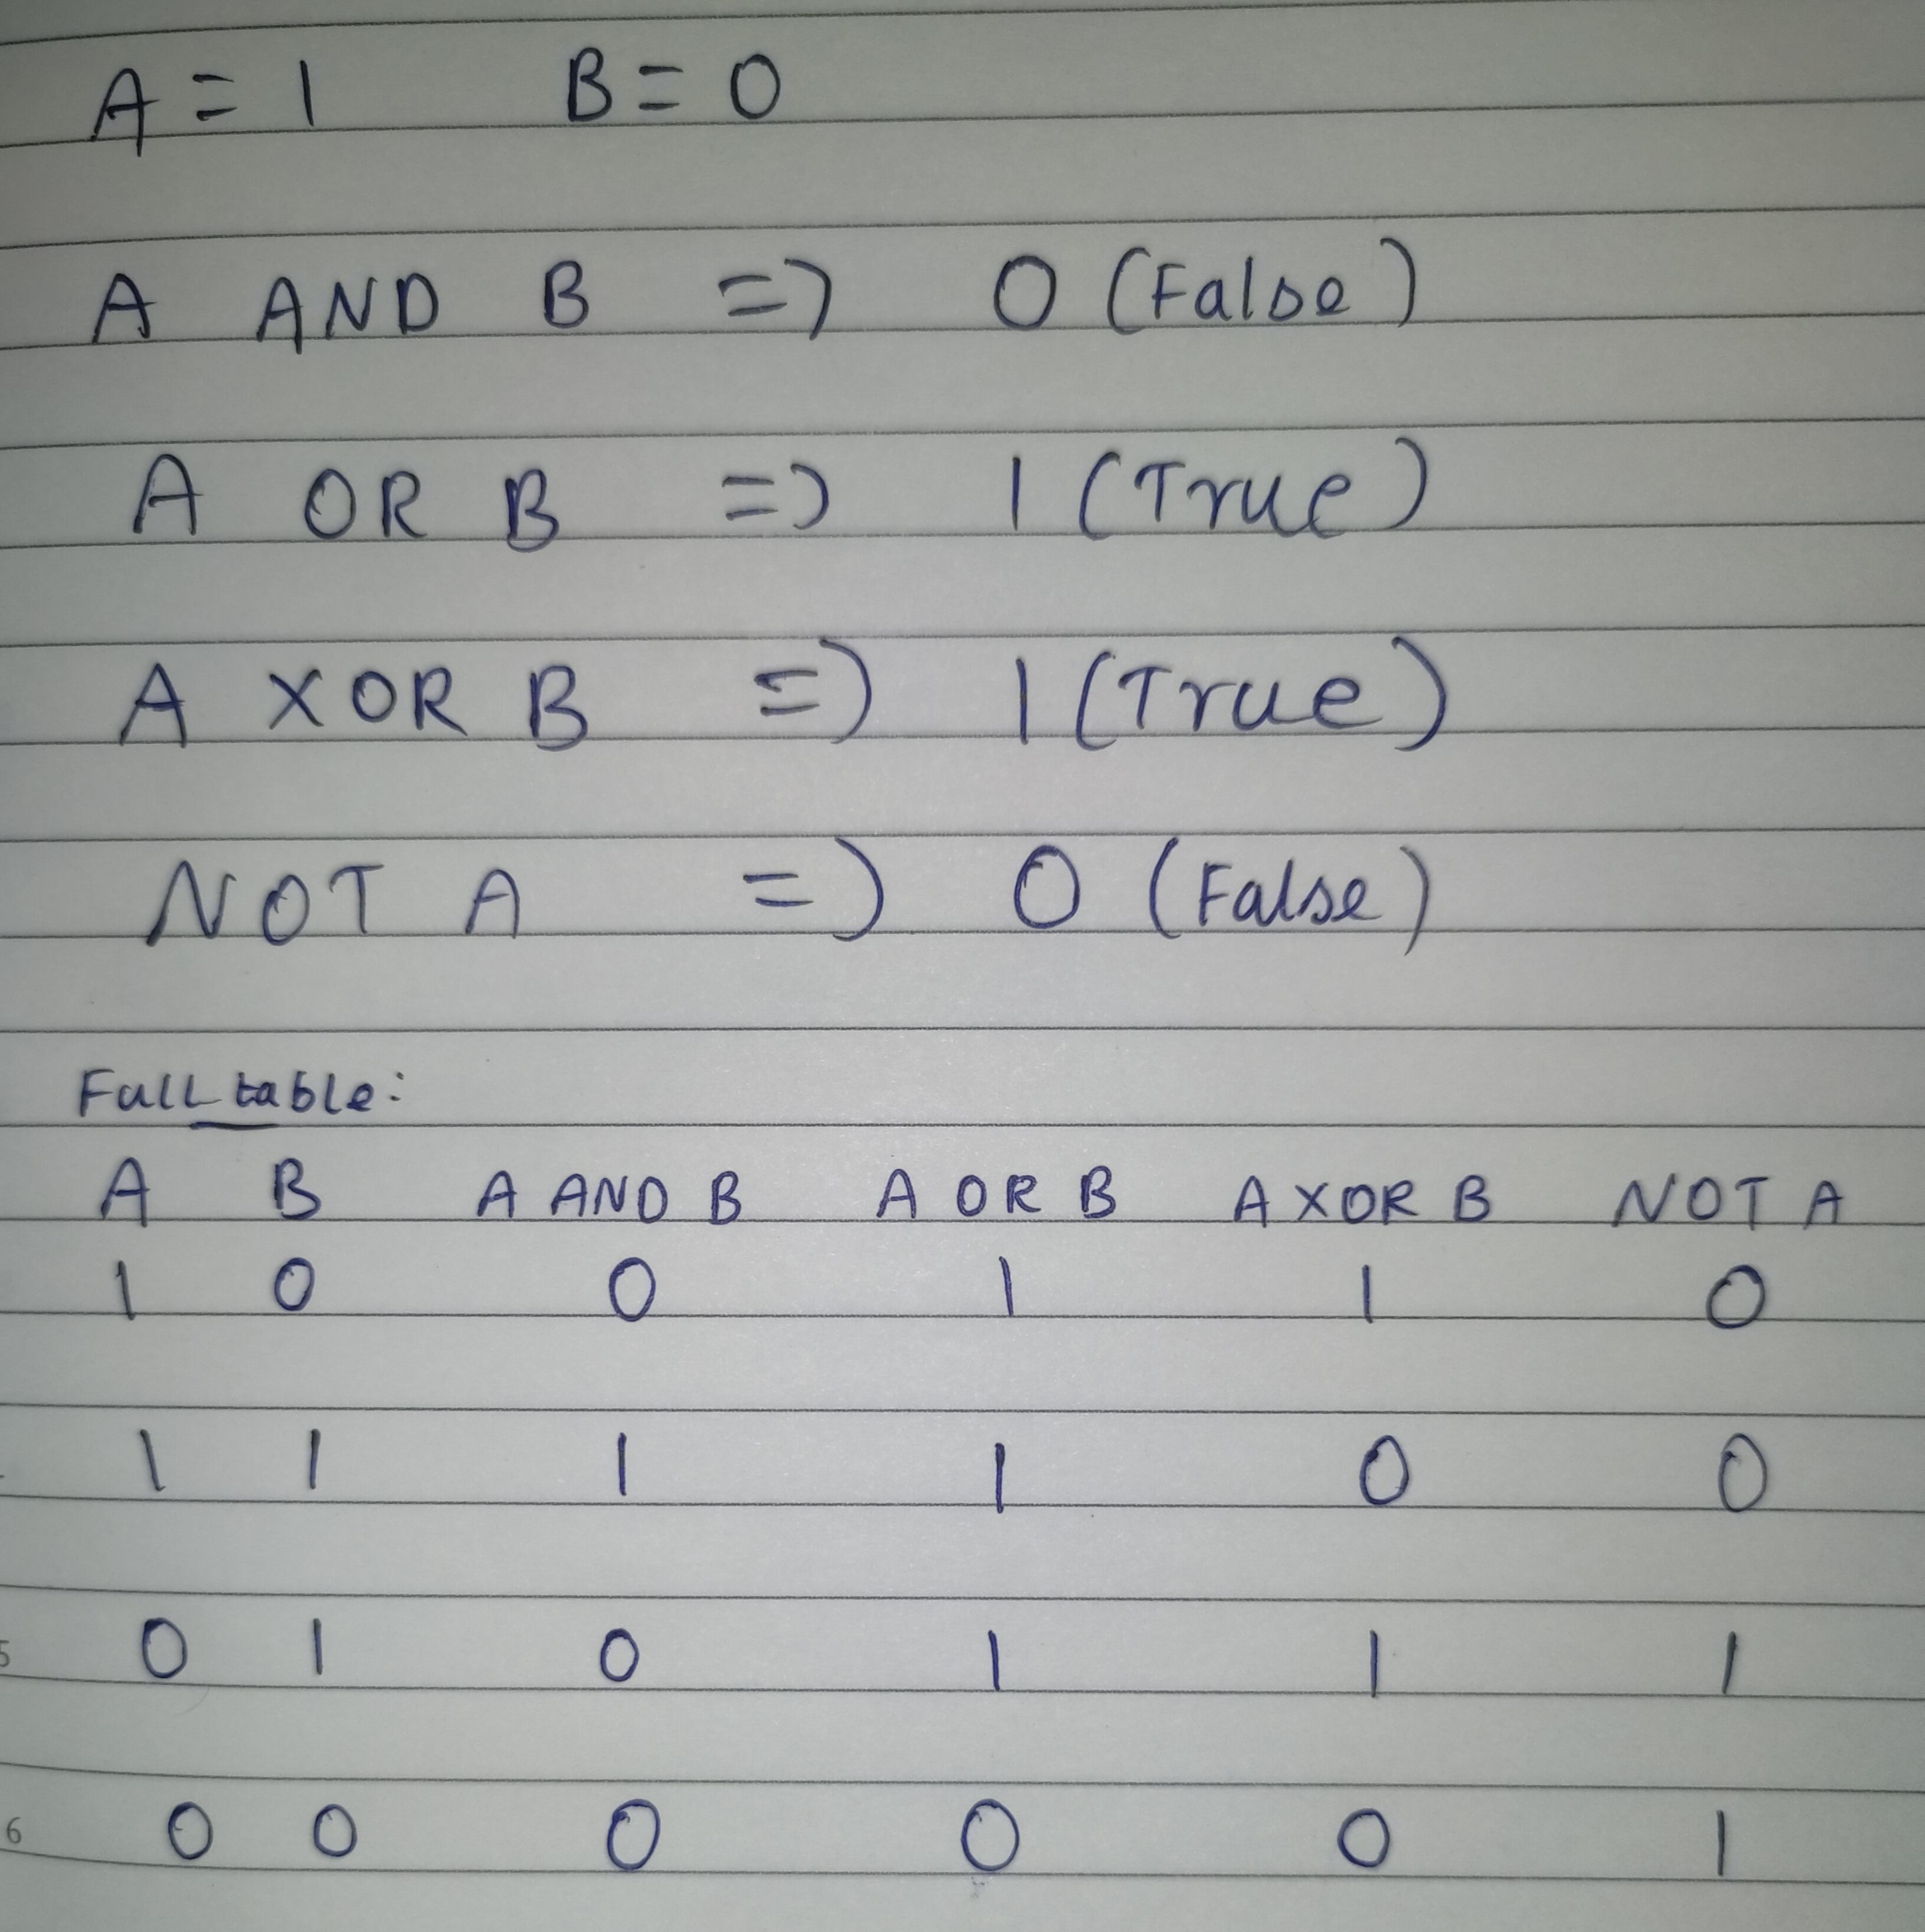 A = 1 B = 0
A AND B => 0 (False)
A OR B => 1 (True)
A XOR B => 1 (True)
NOT A => 0 (False)
Full table:
A B A AND B A OR B A XOR B NOT A
1 0 0 1 1 0
1 1 1 1 0 0
5 0 1 0 1 1 1
6 0 0 0 0 0 1